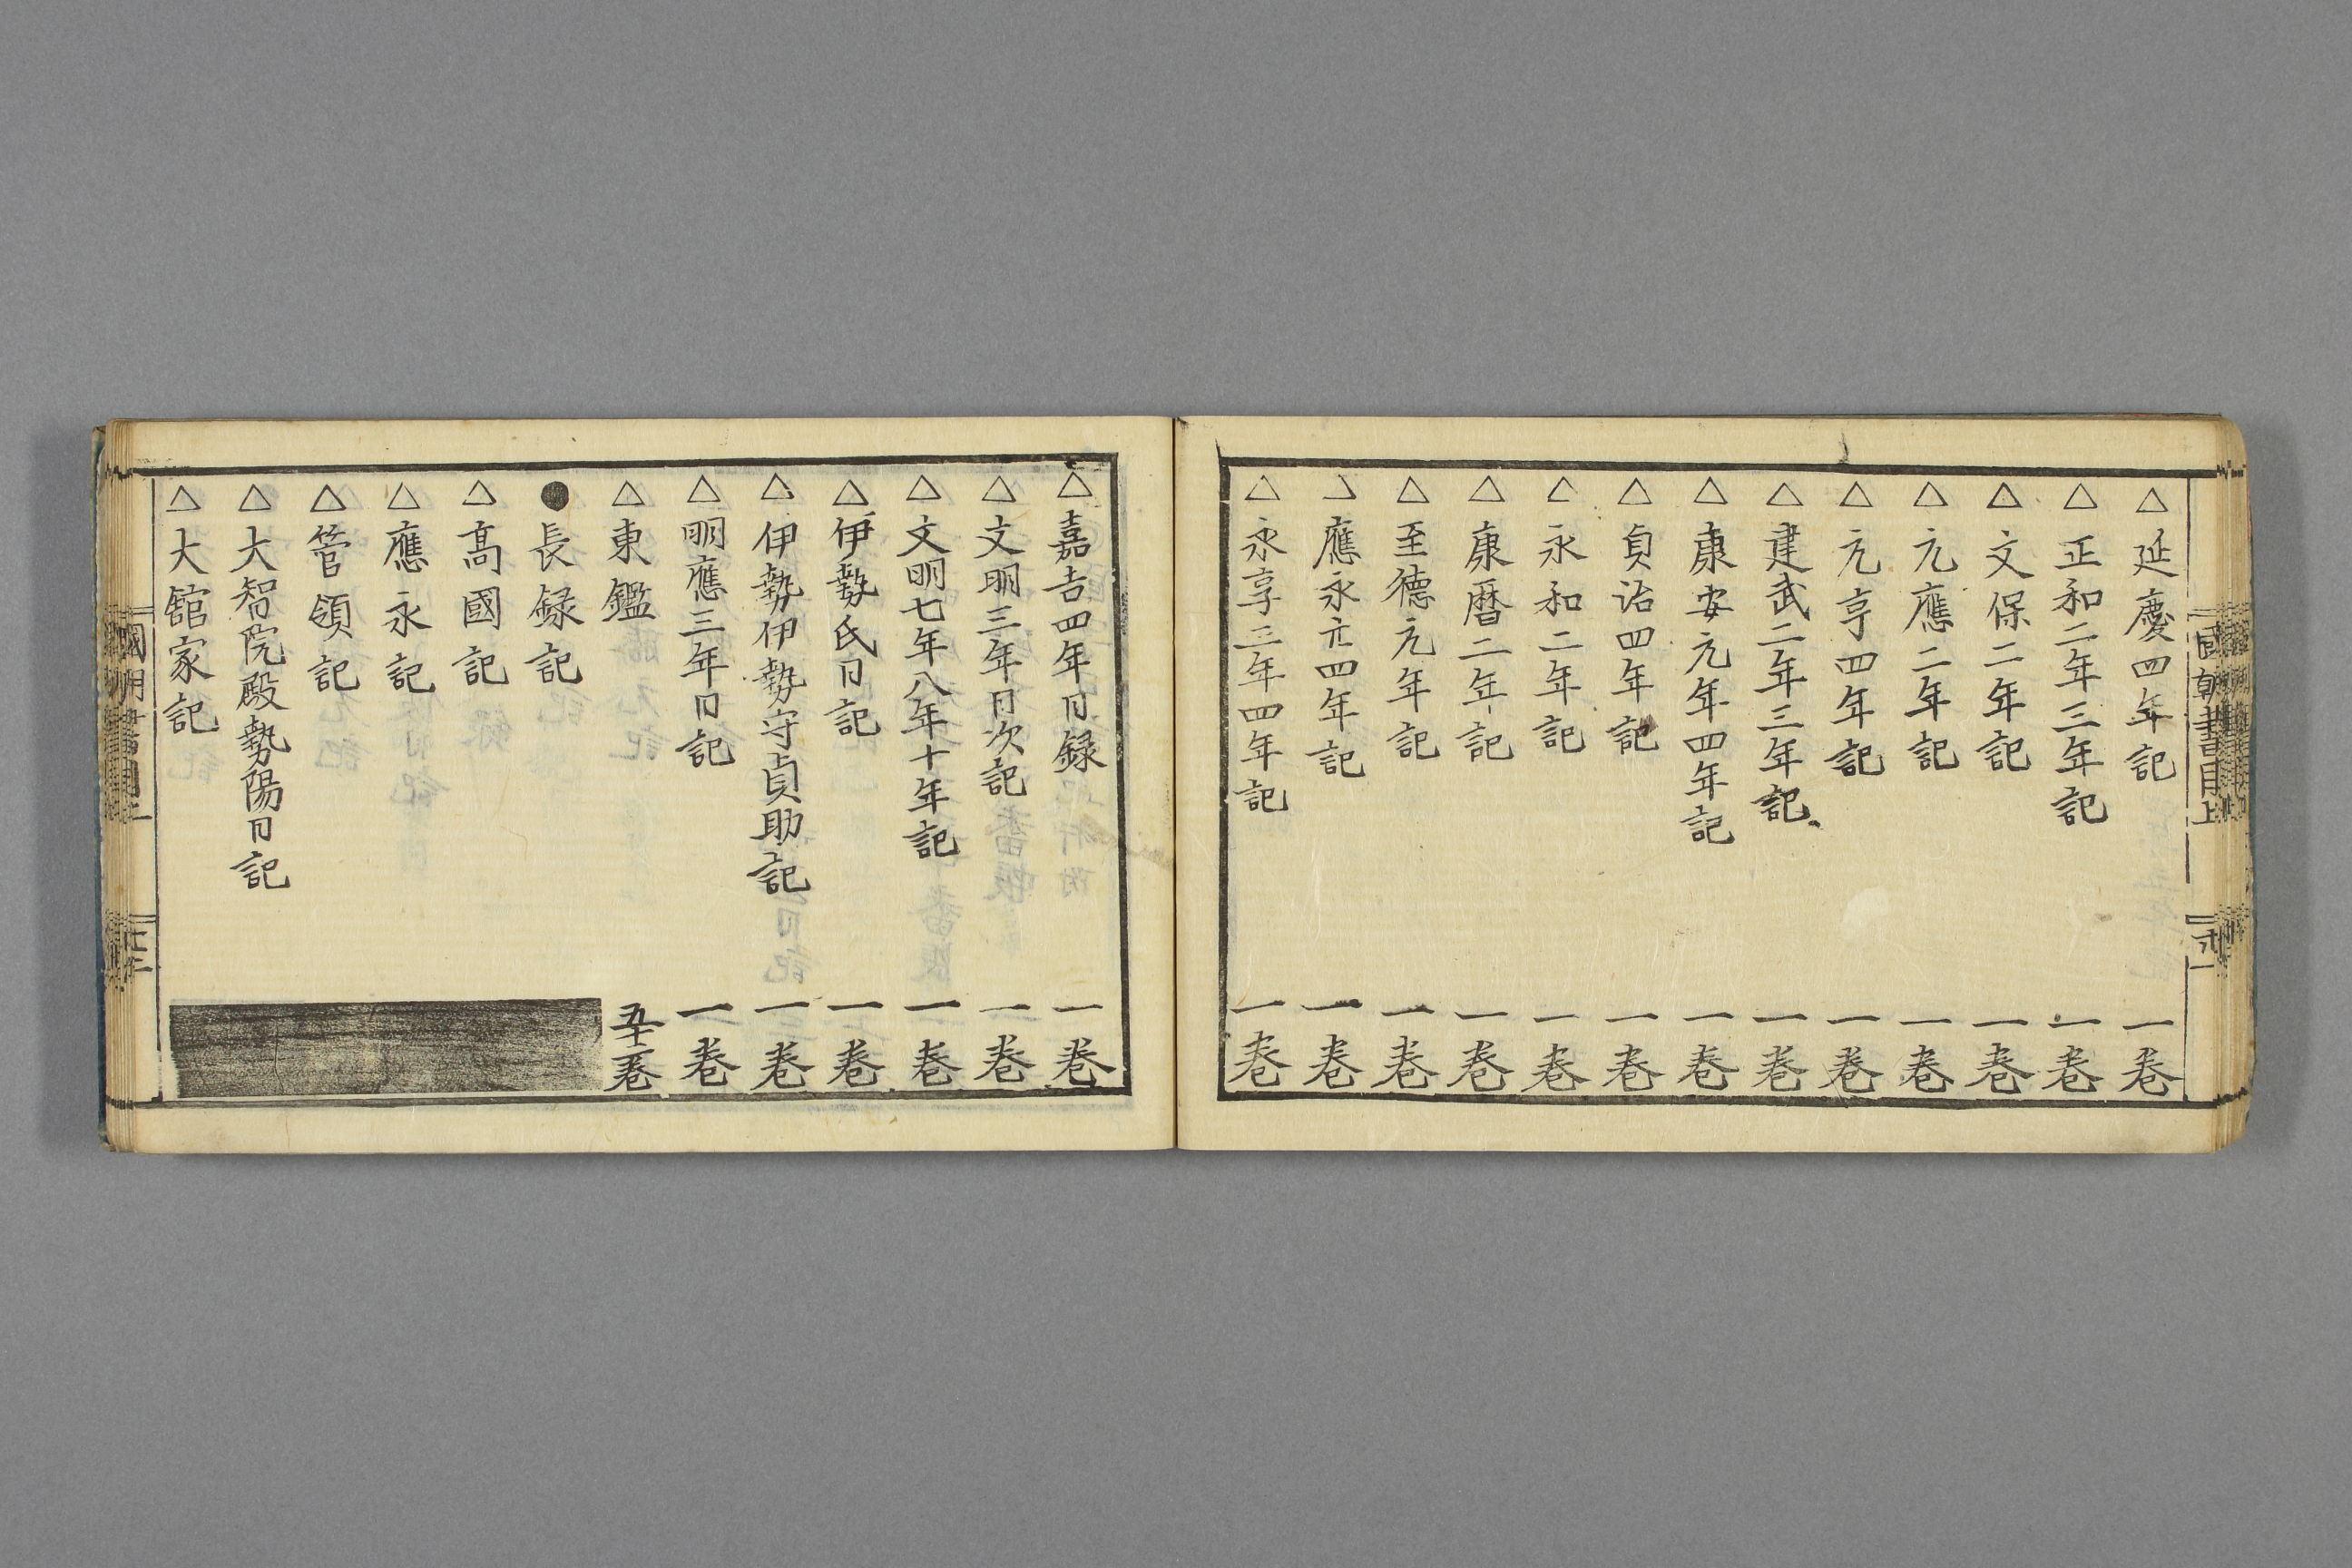 國朝書目上
卅一
△延慶四年記 一巻
△正和二年三年記 一巻
△文保二年記 一巻
△元應二年記 一巻
△元亨四年記 一巻
△建武二年三年記 一巻
△康安元年四年記 一巻
△貞治四年記 一巻
△永和二年記 一巻
△康暦二年記 一巻
△至德元年記 一巻
△應永廿四年記 一巻
△永享二年四年記 一巻
△嘉吉四年日録 一巻
△文明三年日次記 一巻
△文明七年八年十年記 一巻
△伊勢氏日記 一巻
△伊勢伊勢守貞助記 一巻
△明應三年日記 一巻
△東鑑 五十二巻
●長録記
△高國記
△應永記
△管領記
△大智院殿勢陽日記
△大舘家記
國朝書目上